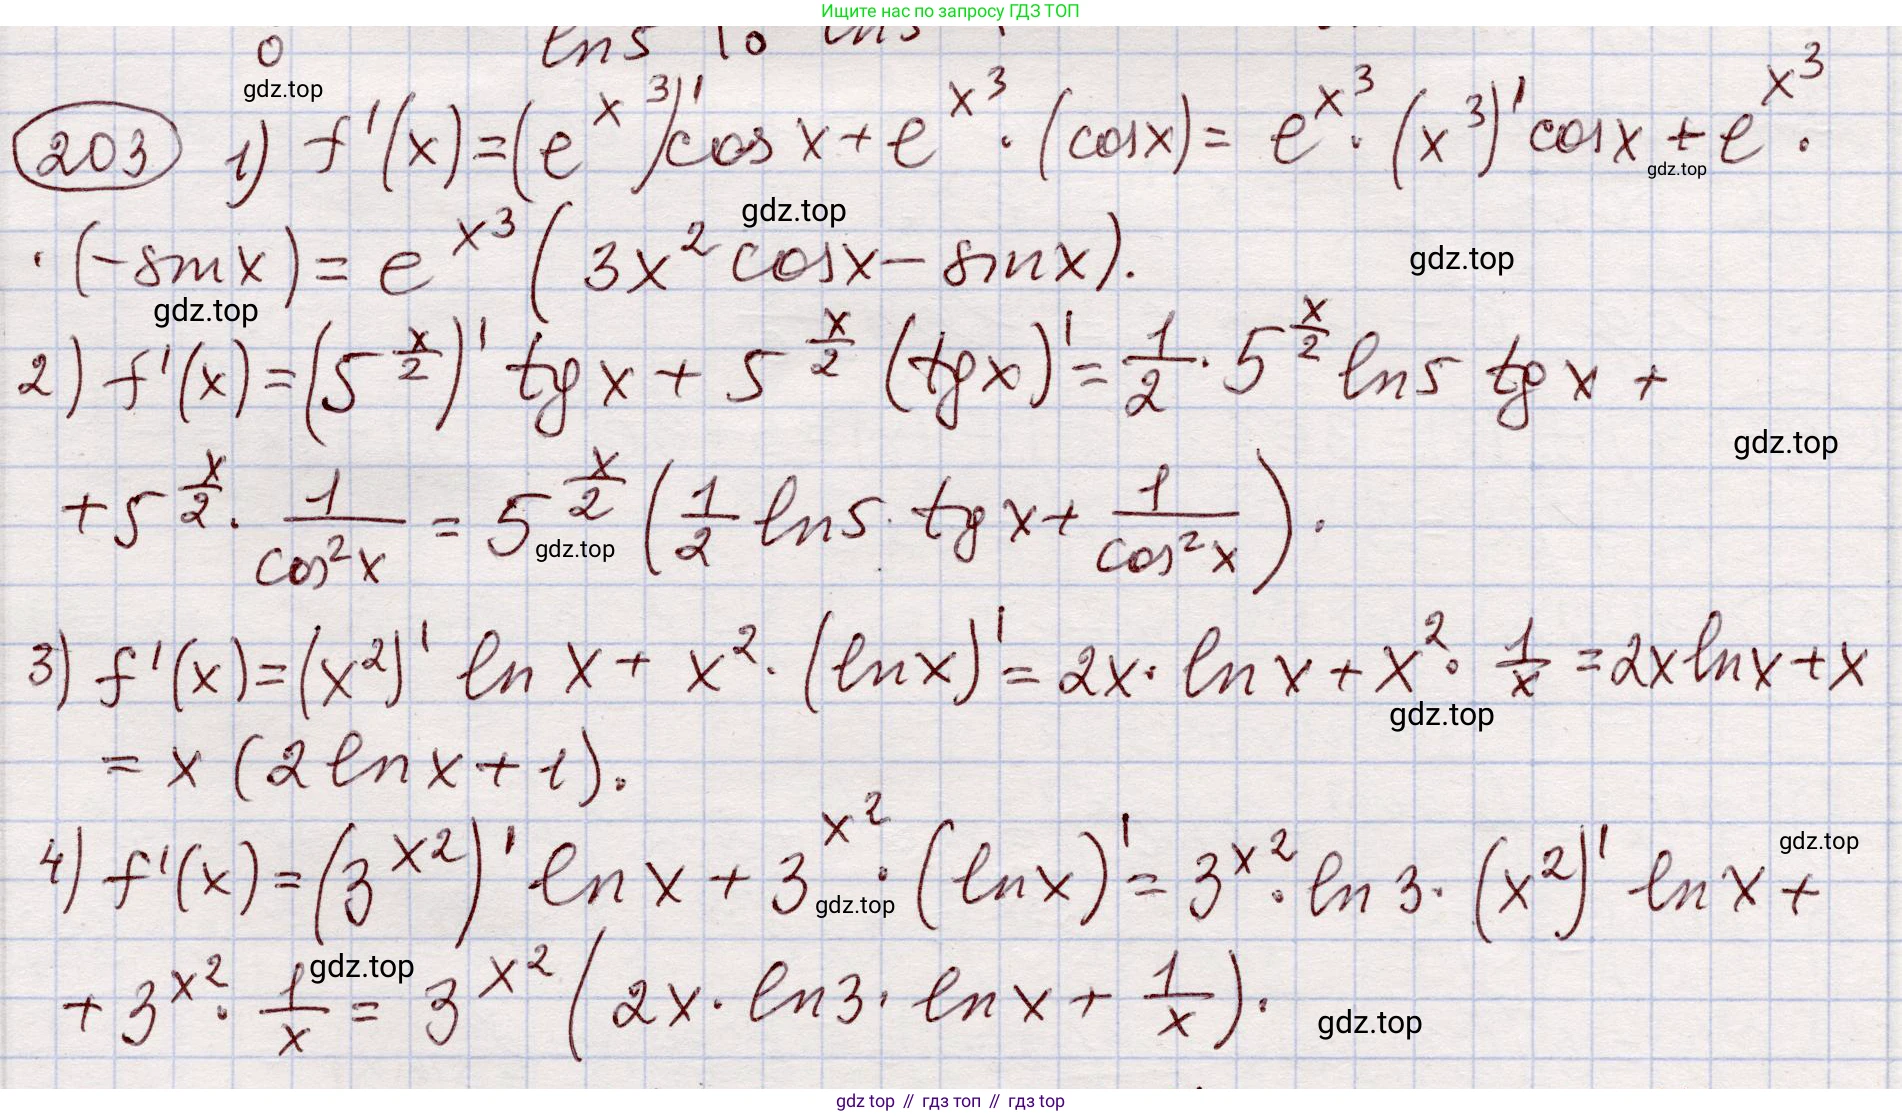 Ищите нас по запросу ГДЗ ТОП
0 ln5 |0 ln5
gdz.top
203 1) f'(x)=(e^{x^3})' cos x + e^{x^3} · (cos x) = e^{x^3} · (x^3)' cos x + e^{x^3} ·
gdz.top
· (-sin x) = e^{x^3} (3x^2 cos x - sin x).
gdz.top
gdz.top
gdz.top
2) f'(x) = (5^{x/2})' tg x + 5^{x/2} (tg x)' = 1/2 · 5^{x/2} ln 5 tg x +
gdz.top
+ 5^{x/2} · 1/cos^2 x = 5^{x/2} (1/2 ln 5 · tg x + 1/cos^2 x).
gdz.top
3) f'(x) = (x^2)' ln x + x^2 · (ln x)' = 2x · ln x + x^2 · 1/x = 2x ln x + x
gdz.top
= x (2 ln x + 1).
4) f'(x) = (3^{x^2})' ln x + 3^{x^2} · (ln x)' = 3^{x^2} · ln 3 · (x^2)' ln x +
gdz.top
gdz.top
+ 3^{x^2} · 1/x = 3^{x^2} (2x · ln 3 · ln x + 1/x).
gdz.top
gdz.top
gdz top // гдз топ // gdz top